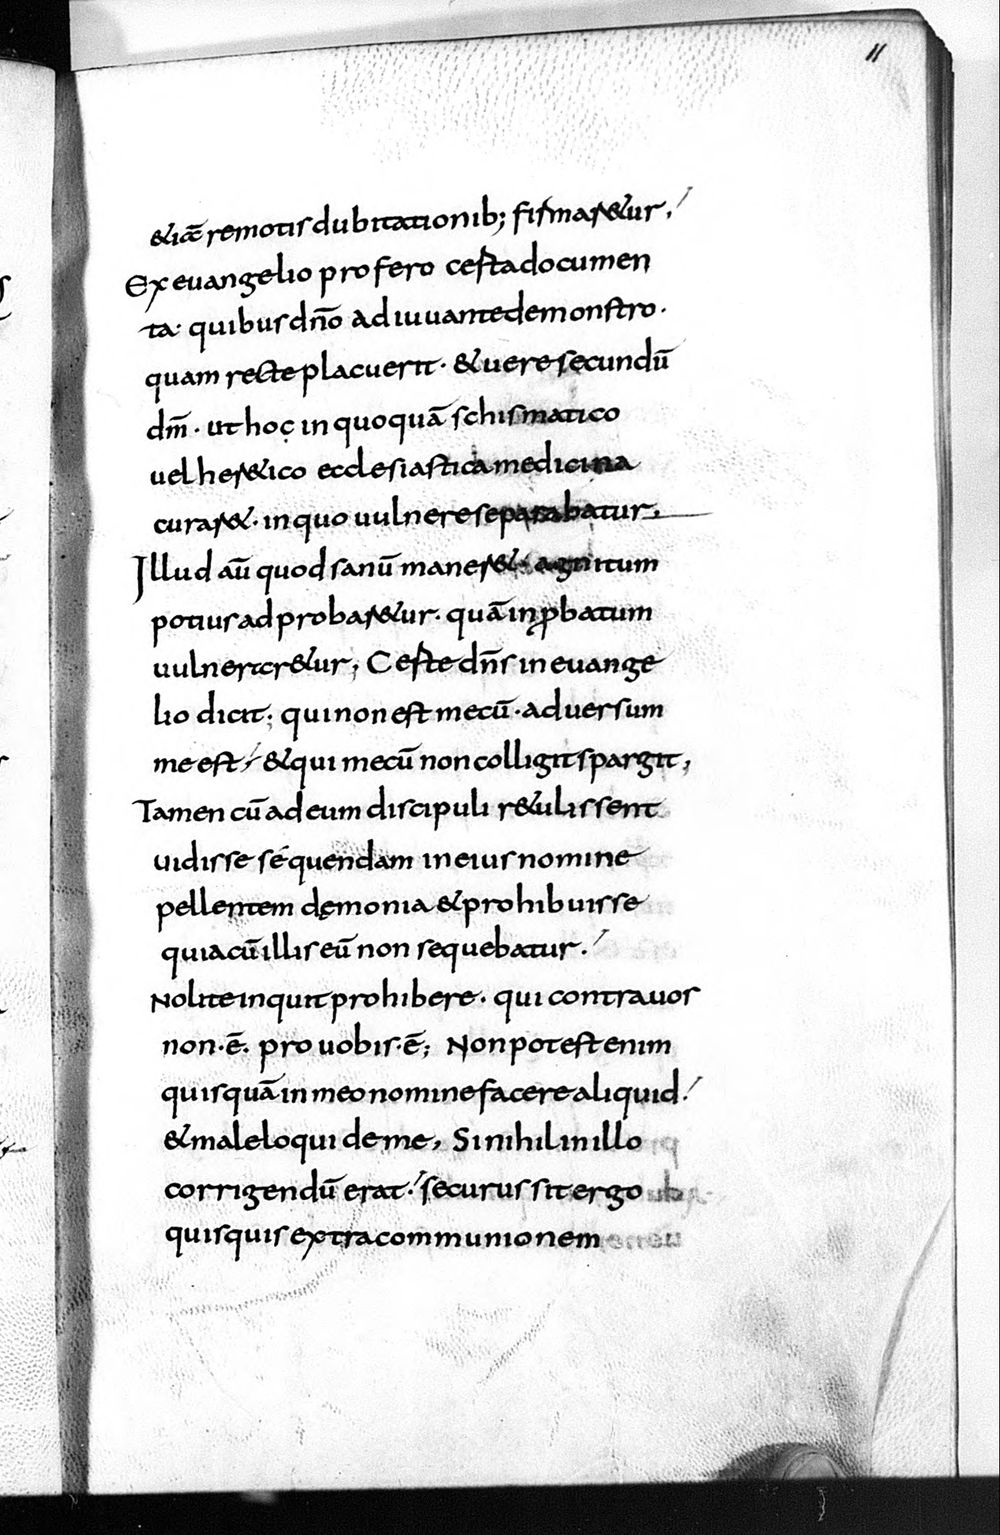 11
&iā remotis dubitationib; firmar&ur,
Ex euangelio profero certa documen
ta· quibus dn̄o adiuuante demonstro·
quam recte placuerit· & uere secundū
dm̄· ut hoc in quoquā schismatico
uel her&ico ecclesiastica medicina
curar&· in quo uulnere separabatur,
Illud aū quod sanū maner&· agnitum
potius adprobar&ur· quā inꝓbatum
uulnerer&ur, Certe dn̄s in euange
lio dicit; qui non est mecū· aduersum
me est, & qui mecū non colligit spargit,
Tamen cū ad eum discipuli r&ulissent
uidisse sé quendam in eius nomine
pellentem dęmonia & prohibuisse
quia cū illis eū non sequebatur.
Nolite inquit prohibere· qui contra uos
non·ē· pro uobis·ē; Non potest enim
quisquā in meo nomine facere aliquid.
& male loqui de me, Si nihil in illo
corrigendū erat· securus sit ergo
quisquis extra communionem